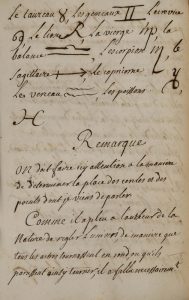 Le taureau ♉, Les gemeaux ♊ Lecrevice
♋ Le lion ♌, La vierge ♍ la
balance ♎, Le scorpion ♏, le
Sagittaire ♐, Le capricorne ♑
Les verseau ♒, Les poissons
♓
Remarque
On doit faire icy attention a la maniere
de determiner la place des cercles et des
points dont je viens de parler.
Comme il a pleu a l'autheur de la
Nature de regler l'univers de maniere que
tous les astres tournassent en rond ou qu'ils
parussent ainsy tourner, il a fallu necessairemt